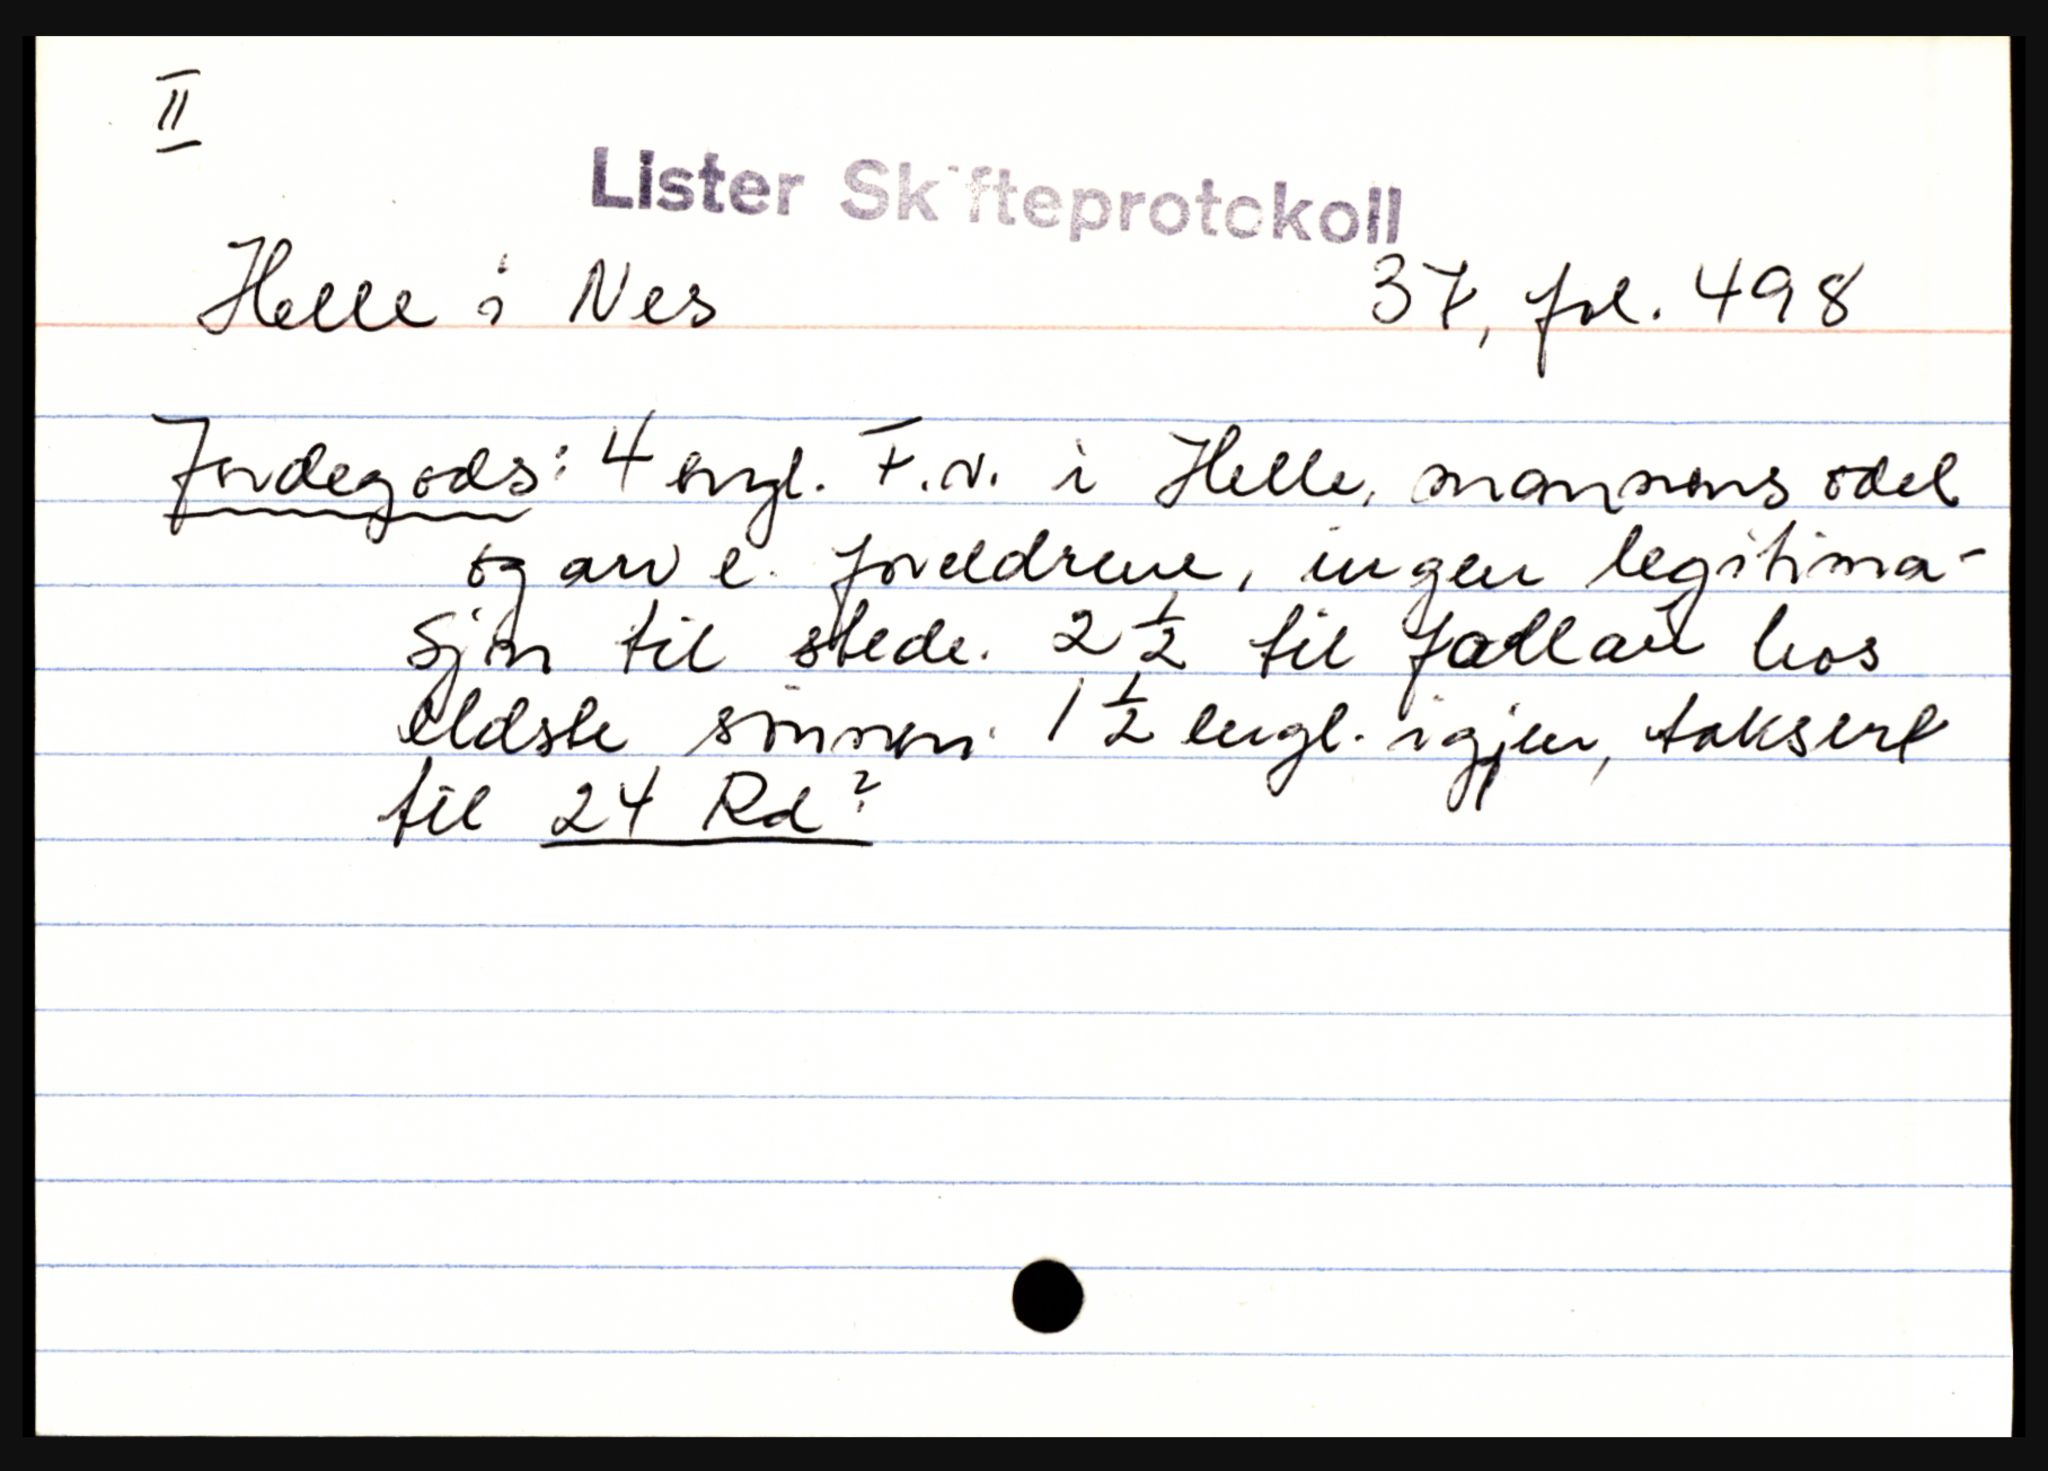 II
Lister Skifteprotokoll
Helle i Nes 37, fol. 498
Jordegods: 4 engl. F.v. i Helle, mannens odel
og arv e. foreldrene, ingen legitima-
sjon til stede. 2 1/2 til hos
eldste sønnen. 1 1/2 engl. igjen, taksert
til 24 Rd?